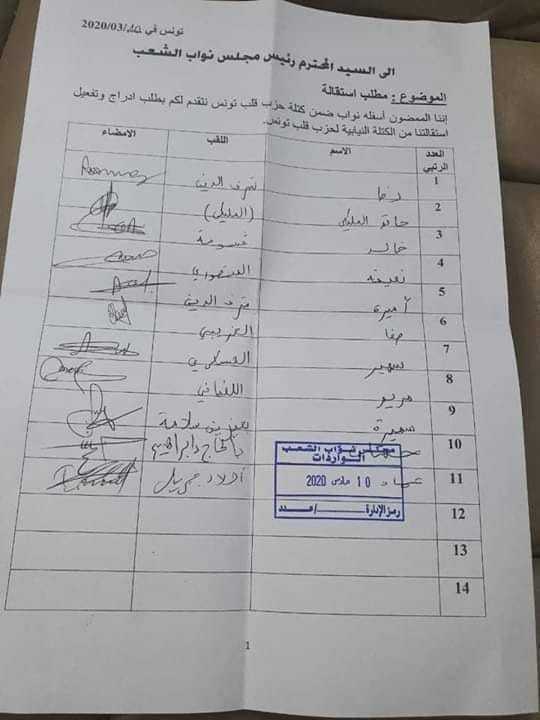 تونس في 10/03/2020
الى السيد المحترم رئيس مجلس نواب الشعب
الموضوع : مطلب استقالة
إننا الممضون أسفله نواب ضمن كتلة حزب قلب تونس نتقدم لكم بطلب ادراج وتفعيل
استقالتنا من الكتلة النيابية لحزب قلب تونس.
العدد الرتبي الاسم اللقب الامضاء
1 رضا شرف الدين
2 حاتم المليكي (المليكي)
3 خالد قسومة
4 نعيمة المنصوري
5 أميرة شرف الدين
6 صفا الغريبي
7 سهير العسكري
8 مريم اللغماني
9 سميرة بن سلامة
10 بالحاج ابراهيم
11 عماد أولاد جبريل
12
13
14
مجلس نواب الشعب
الواردات
10 مارس 2020
رمز الإدارة / عــدد
1